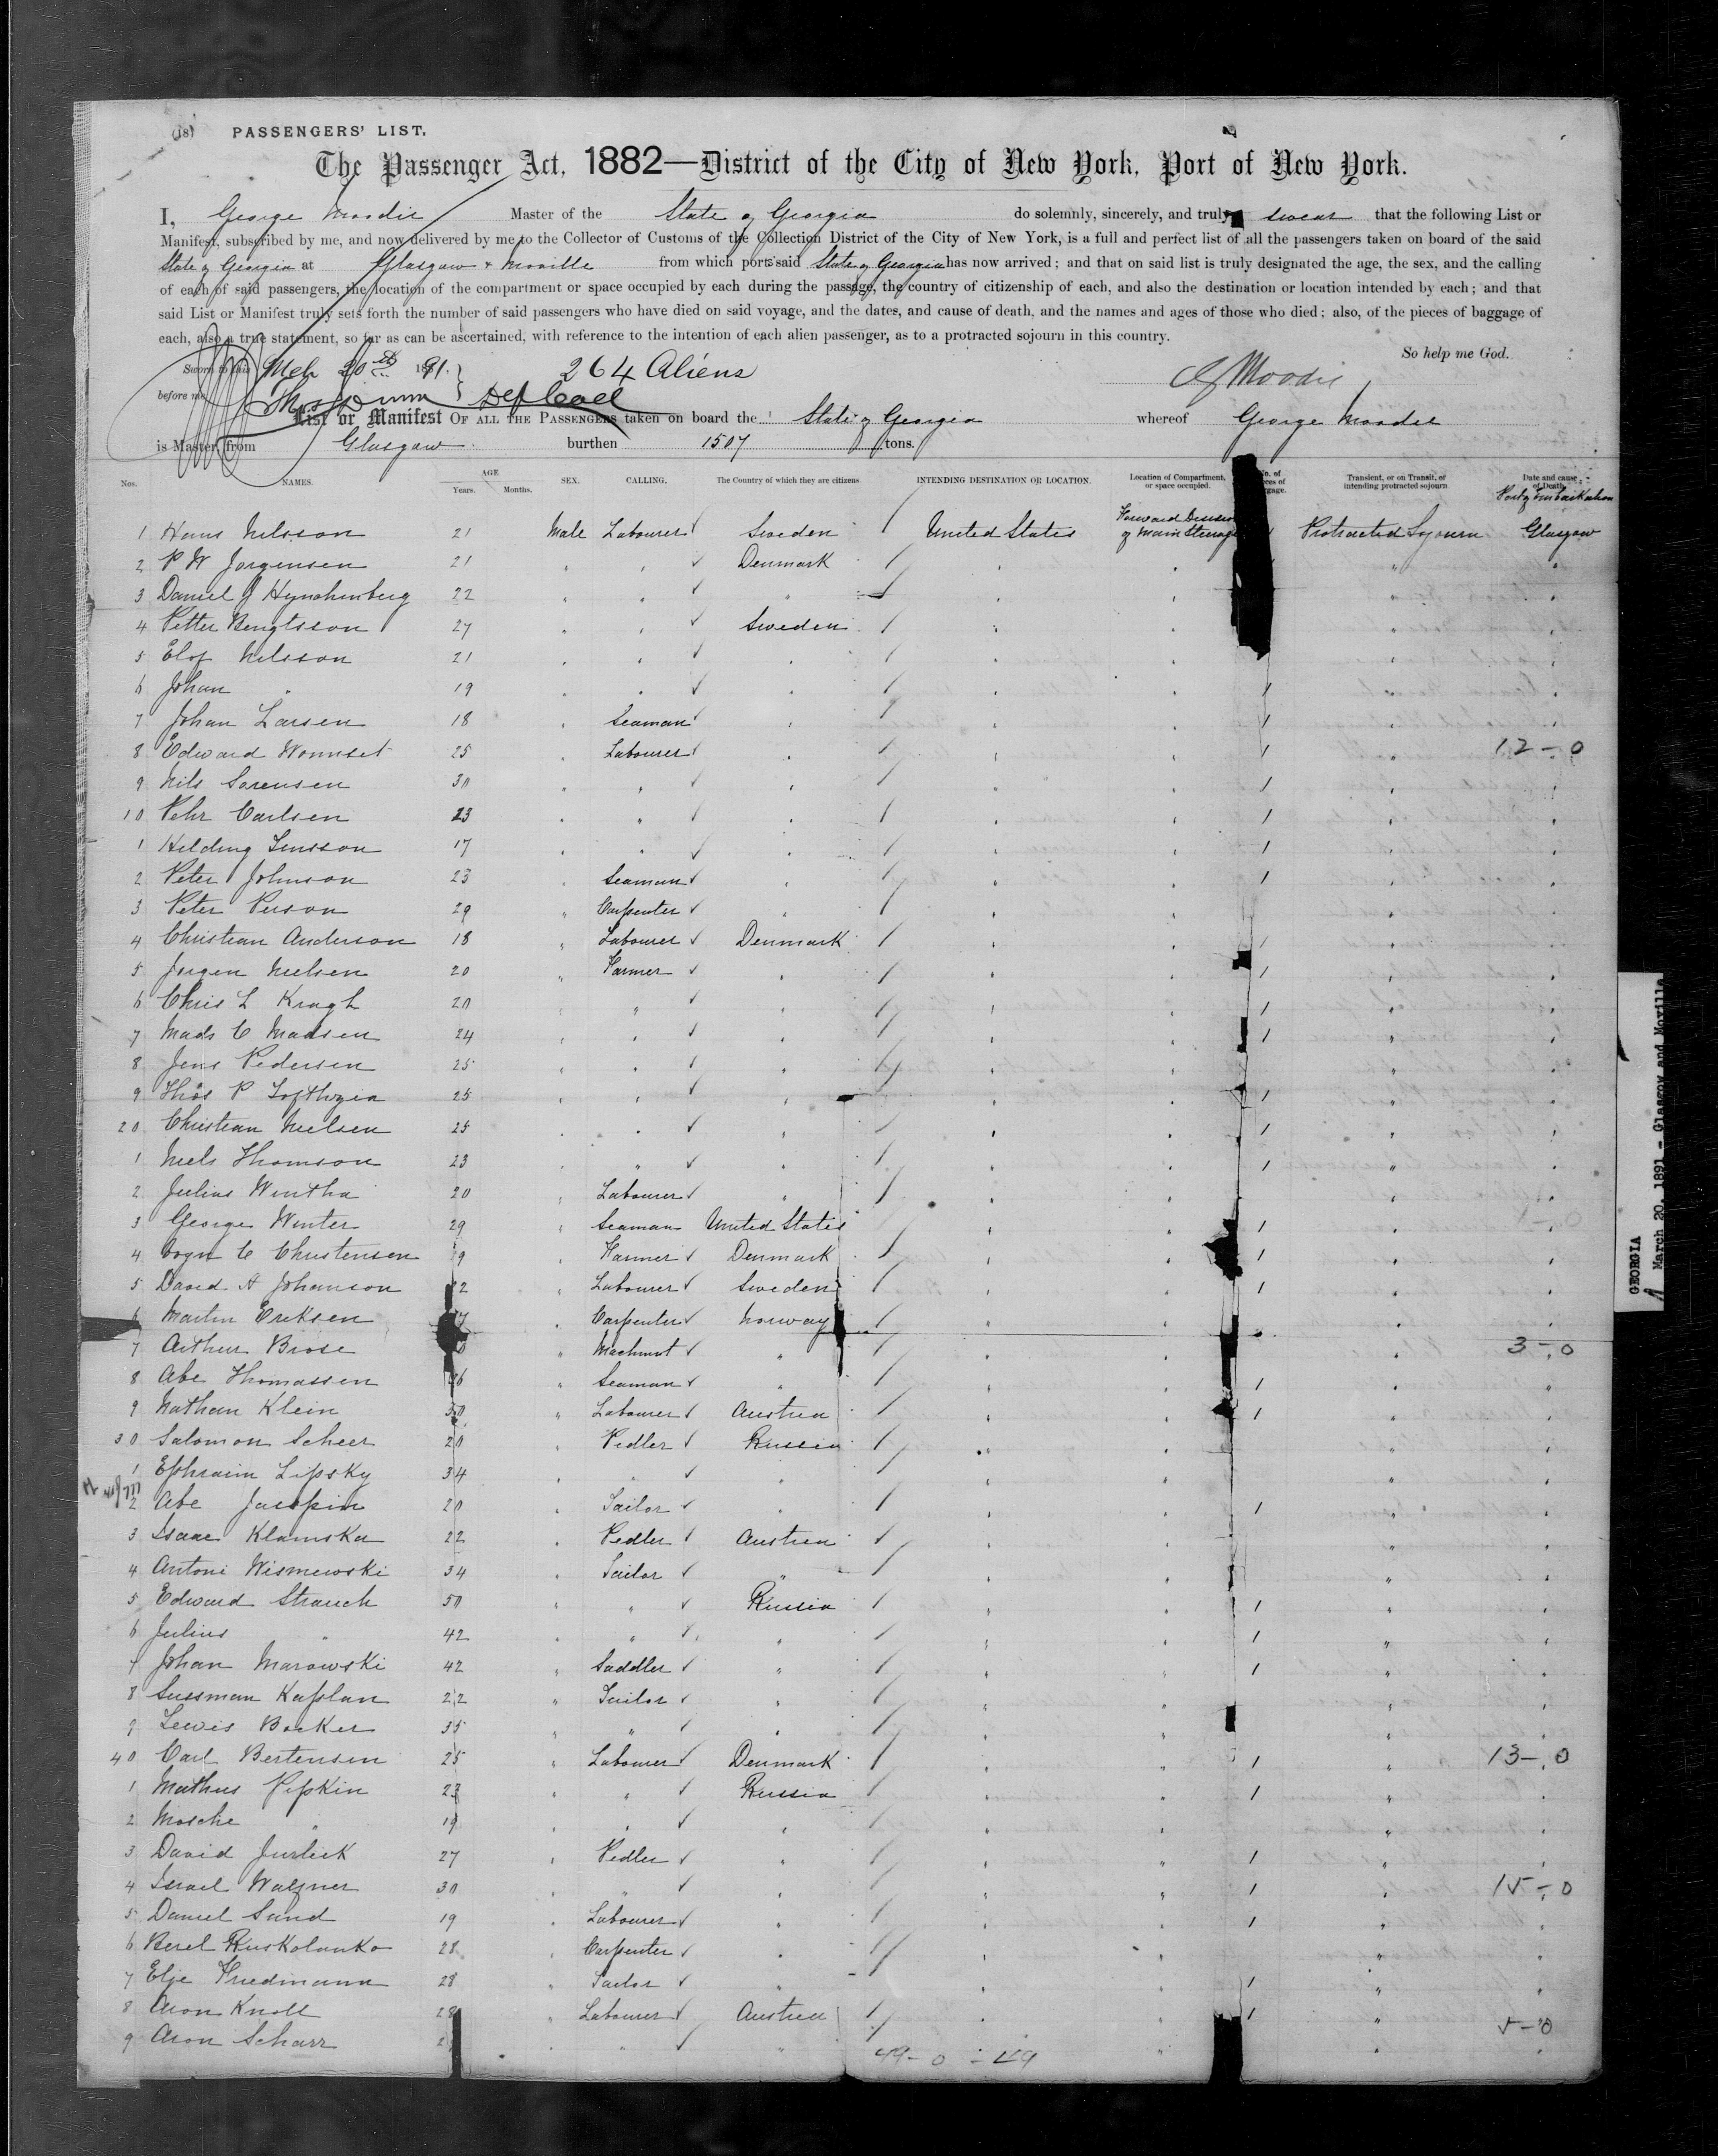 (18) PASSENGERS' LIST.
The Passenger Act, 1882—District of the City of New York, Port of New York.
I, George Moodie Master of the State of Georgia do solemnly, sincerely, and truly swear that the following List or
Manifest, subscribed by me, and now delivered by me to the Collector of Customs of the Collection District of the City of New York, is a full and perfect list of all the passengers taken on board of the said
State of Georgia at Glasgow & Moville from which ports said State of Georgia has now arrived; and that on said list is truly designated the age, the sex, and the calling
of each of said passengers, the location of the compartment or space occupied by each during the passage, the country of citizenship of each, and also the destination or location intended by each; and that
said List or Manifest truly sets forth the number of said passengers who have died on said voyage, and the dates, and cause of death, and the names and ages of those who died; also, of the pieces of baggage of
each, also a true statement, so far as can be ascertained, with reference to the intention of each alien passenger, as to a protracted sojourn in this country.
So help me God.
Sworn to this Mch 20th 1891. 264 Aliens G Moodie
before me Dep Coll
List or Manifest OF ALL THE PASSENGERS taken on board the State of Georgia whereof George Moodie
is Master, from Glasgow burthen 1507 tons.
Nos. NAMES. AGE Years. Months. SEX. CALLING. The Country of which they are citizens. INTENDING DESTINATION OR LOCATION. Location of Compartment, or space occupied. No. of pieces of baggage. Transient, or on Transit, or intending protracted sojourn Date and cause of Death. Port of Embarkation
1 Hans Nilsson 21 Male Labourer Sweden / United States Forward Division of Main Steerage Protracted Sojourn Glasgow
2 P W Jorgensen 21 " " Denmark /
3 Daniel J Hynchenberg 22 " " " /
4 Petter Bengtsson 27 " " Sweden /
5 Elof Nilsson 21 " " " /
6 Johan " 19 " " " / 1
7 Johan Larsen 18 " Seaman " / 1
8 Edward Wonnset 25 " Labourer " / 1 12-0
9 Nils Sorensen 30 " " " / 1
10 Pehr Carlsen 23 " " " / 1
1 Hilding Jinsson 17 " " " / 1
2 Peter Johnson 23 " Seaman " / 1
3 Peter Person 29 " Carpenter " /
4 Christian Anderson 18 " Labourer Denmark / 1
5 Jorgen Nielsen 20 " Farmer " / 1
6 Chris L Kragh 20 " " " / 1
7 Mads C Madsen 24 " " " / 1
8 Jens Pedersen 25 " " " /
9 Thos P 25 " " " / 1
20 Christian Nielsen 25 " " " / 1
1 Niels Thomson 23 " " " / 1
2 Julius Wintha 20 " Labourer " /
3 George Winter 29 " Seaman United States 1
4 C Christensen 9 " Farmer Denmark / 1
5 David A Johanson 2 " Labourer Sweden / 1
6 Martin Eriksen " Carpenter Norway /
7 Arthur Brose " Machinist " / 3-0
8 Abe Thomassen 6 " Seaman " / 1
9 Nathan Klein 30 " Labourer Austria / 1
30 Salomon Scheer 20 " Pedler Russia /
1 Ephraim Lipsky 34 " " " /
2 Abe 20 " Tailor " / 1
3 Isaac Klamska 22 " Pedler Austria /
4 Antoni Wismewski 34 " Tailor " /
5 Edward Strauch 50 " " Russia / 1
6 Julius " 42 " " " / 1
7 Johan Marowski 42 " Saddler " / 1
8 Sussman Kaplan 22 " Tailor " /
9 Lewis Backer 35 " " " /
40 Carl Bertensen 25 " Labourer Denmark / 1 13-0
1 Mathus Pipkin 23 " " Russia / 1
2 Mosche " 19 " " " /
3 David Jurlick 27 " Pedler " / 1
4 Israel Walzner 30 " " " / 1 15-0
5 Daniel Sund 19 " Labourer " / 1
6 Berel Ruskolanko 28 " Carpenter " /
7 Elje Friedmann 28 " Tailor " / 1
8 Aron Knoll 28 " Labourer Austria / 1
9 Aron Scharr 2 " " " / 5-0
49-0 = 49
GEORGIA
March 20, 1891 - Glasgow and Moville